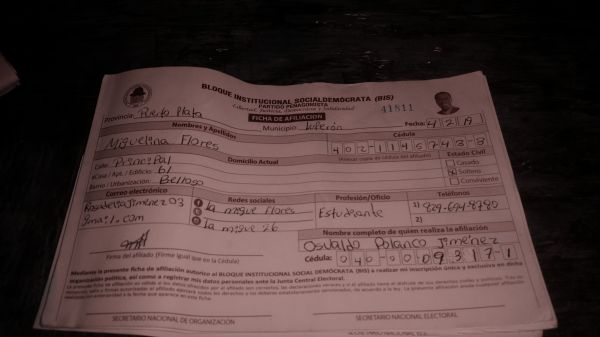 BLOQUE INSTITUCIONAL SOCIALDEMÓCRATA (BIS)
PARTIDO PEÑAGOMISTA
Libertad, Justicia, Democracia y Solidaridad
41811
FICHA DE AFILIACIÓN
Provincia: Puerto Plata
Municipio: Luperón
Fecha: 4/2/19
Nombres y Apellidos
Cédula
Miguelina Flores
402-1145743-3
(Anexar copia de cédula del afiliado)
Domicilio Actual
Estado Civil
Calle: Principal
Casado
#Casa / Apt. / Edificio: 61
Soltero
Barrio / Urbanización: Belloso
Conviviente
Correo electrónico
Redes sociales
Profesión/Oficio
Teléfonos
Rosadeliajimenez03
La migue flores
Estudiante
1) 829-694-8780
gmail.com
La migue 26
2)
Nombre completo de quien realiza la afiliación
Osvaldo Polanco Jiménez
Firma del afiliado (Firme igual que en la Cédula)
Cédula: 040-0009317-1
Mediante la presente ficha de afiliación autorizo al BLOQUE INSTITUCIONAL SOCIALDEMÓCRATA (BIS) a realizar mi inscripción única y exclusiva en dicha
organización política, así como a registrar mis datos personales ante la Junta Central Electoral.
SECRETARIO NACIONAL DE ORGANIZACIÓN
SECRETARIO NACIONAL ELECTORAL